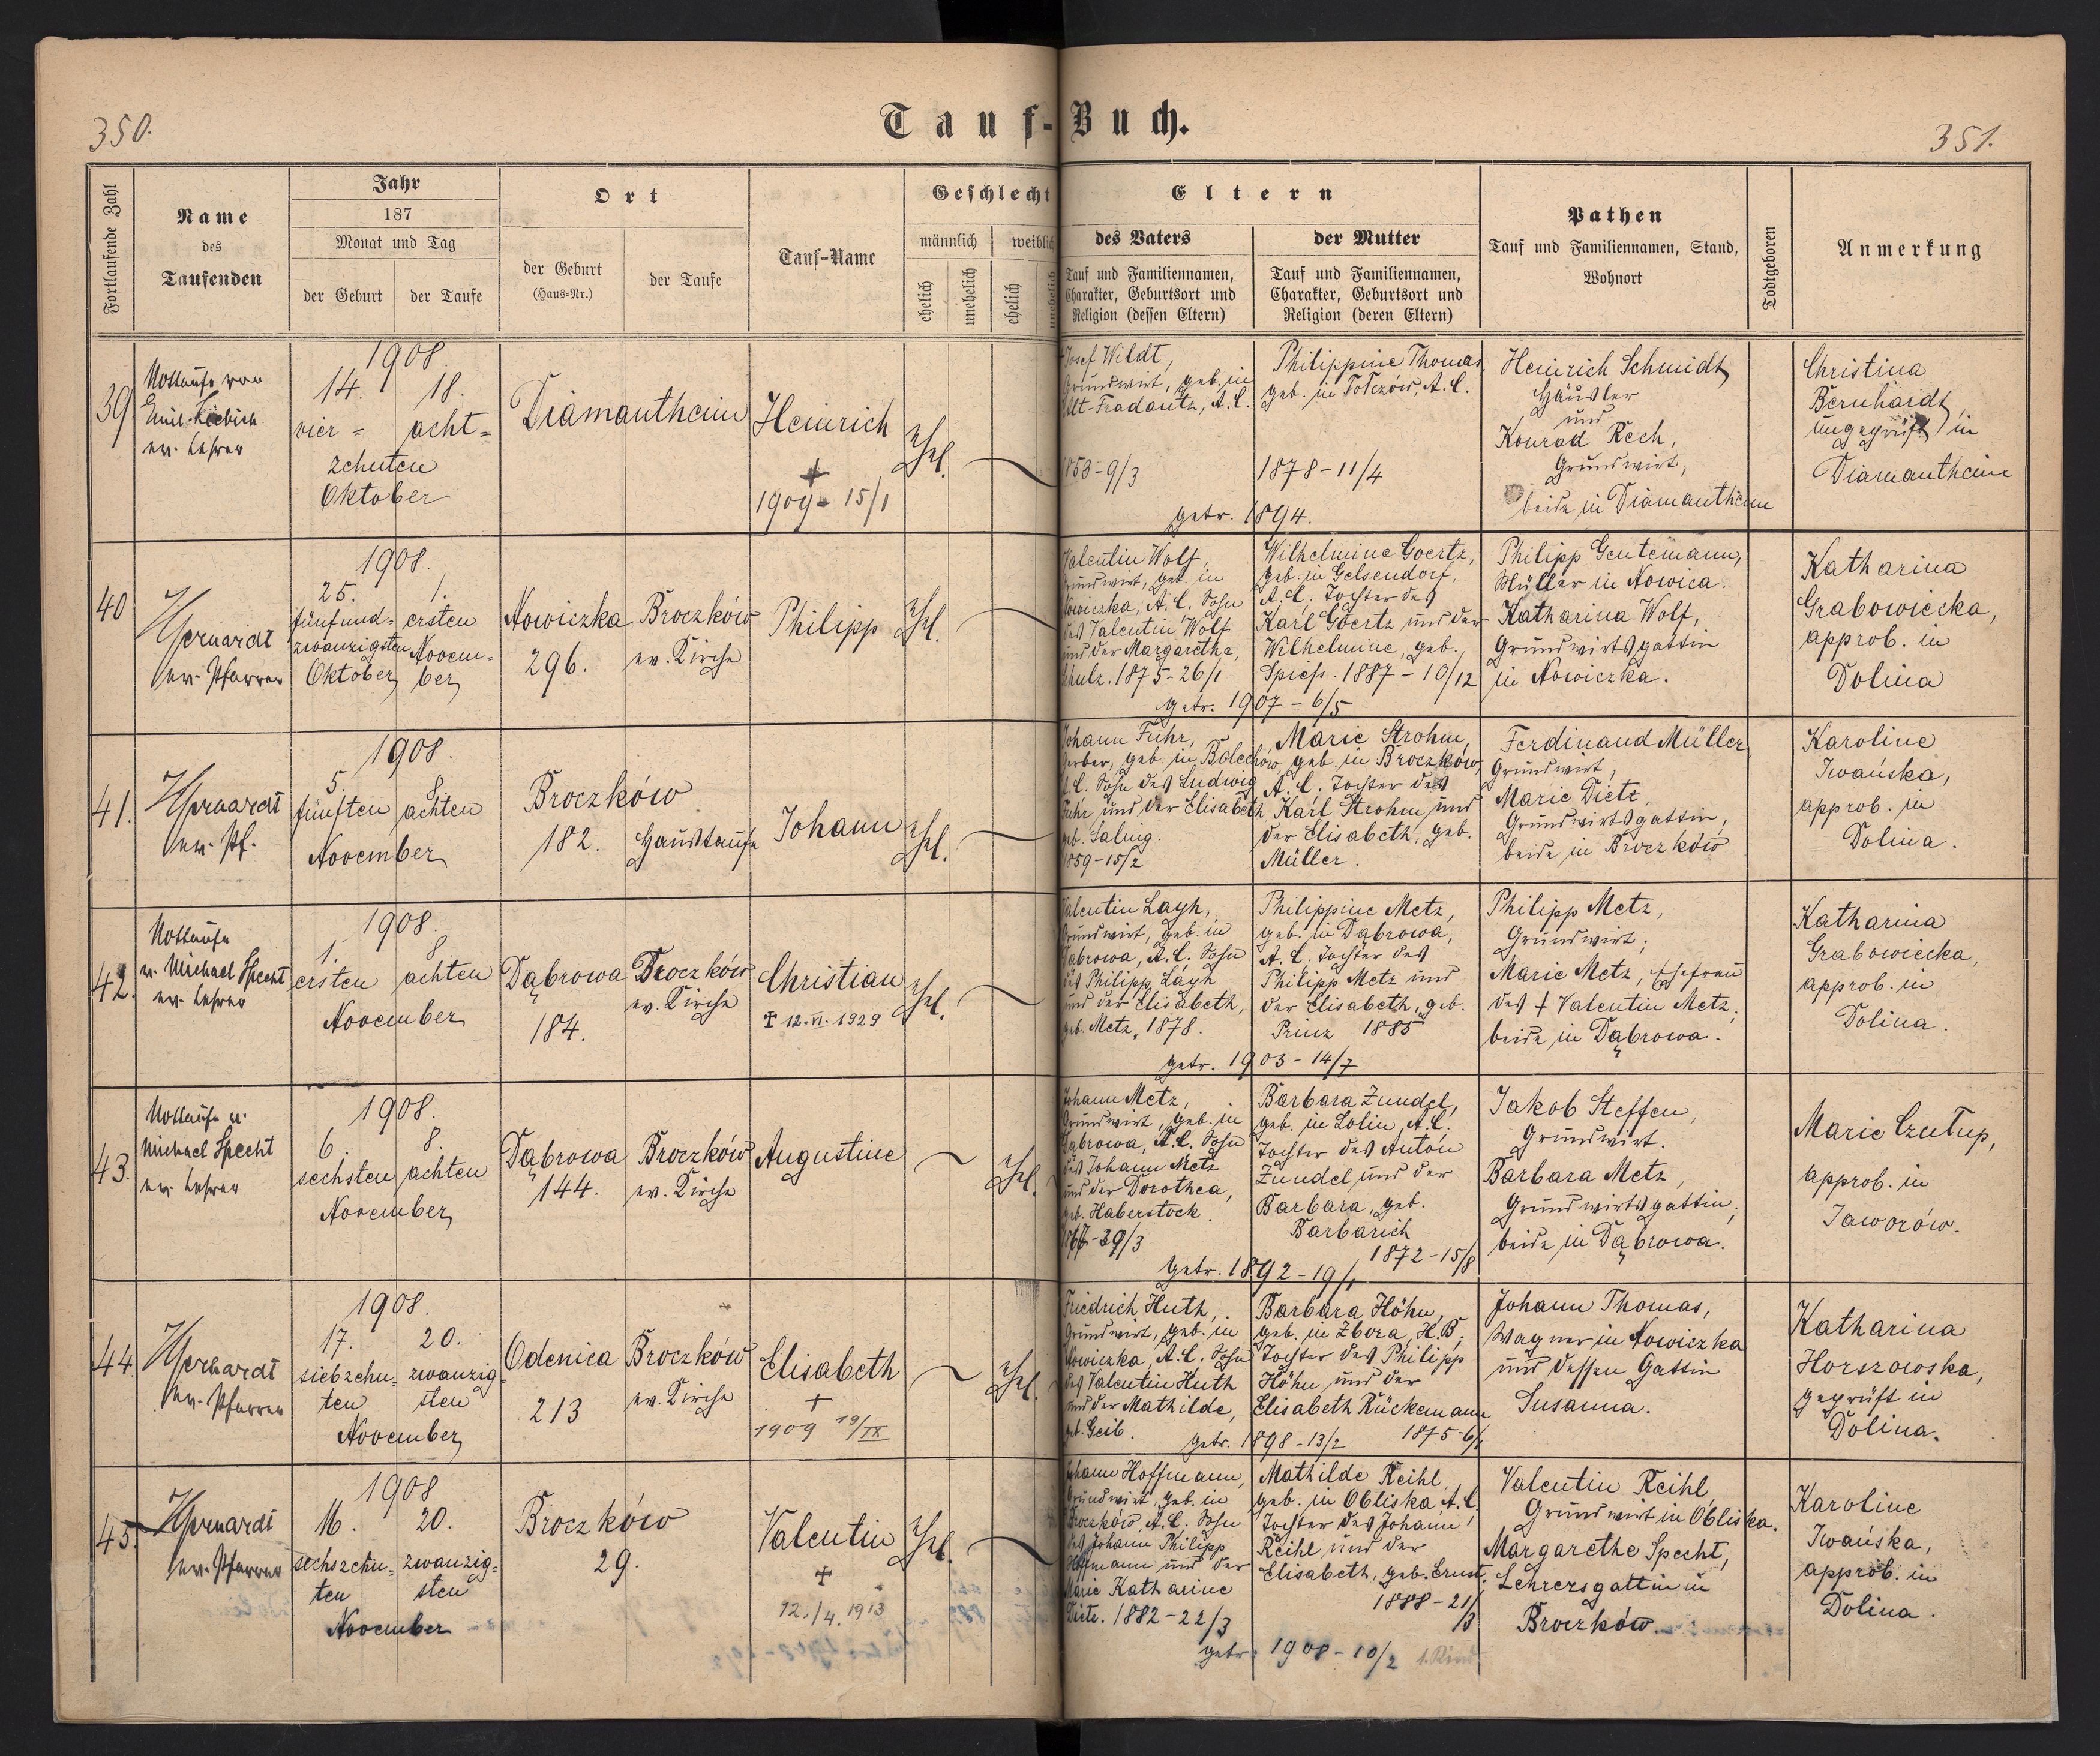 350.
Tauf-Buch.
351.
Fortlaufende Zahl
Name
des
Taufenden
Jahr
187
Monat und Tag
der Geburt
der Taufe
Ort
der Geburt
(Haus-Nr.)
der Taufe
Tauf-Name
Geschlecht
männlich
weiblich
ehelich
unehelich
ehelich
unehelich
Eltern
des Vaters
Tauf und Familiennamen,
Charakter, Geburtsort und
Religion (dessen Eltern)
der Mutter
Tauf und Familiennamen,
Charakter, Geburtsort und
Religion (deren Eltern)
Pathen
Tauf und Familiennamen, Stand,
Wohnort
Todtgeboren
Anmerkung
39
Nottaufe von
Emil
ev. Lehrer
1908
14. 18.
vier= acht=
zehnten
Oktober
Diamantheim
Heinrich
+
1909 - 15/1
Ehel.
Josef Wildt,
Grundwirt, geb. in
Alt-Fradautz, A.C.
1853-9/3
Philippine Thomas
geb. in A.C.
1878-11/4
getr. 1894.
Heinrich Schmidt
Häusler
und
Konrad Rech,
Grundwirt,
beide in Diamantheim
Christina
Bernhardt,
ungeprüft in
Diamantheim
40
ev. Pfarrer
1908.
25. 1.
fünfund= ersten
zwanzigsten Novem=
Oktober ber
Nowiczka
296.
Broczków
ev. Kirche
Philipp
Ehel.
Valentin Wolf,
Grundwirt, geb. in
Nowiczka, A.C. Sohn
des Valentin Wolf
und der Margaretha,
Schulz. 1875-26/1
Wilhelmine Goertz,
geb. in Gelsendorf,
A.C. Tochter des
Karl Goertz und der
Wilhelmine, geb.
Spiess. 1887-10/12
getr. 1907-6/5
Philipp Gentemann,
Müller in Nowica.
Katharina Wolf,
Grundwirtsgattin
in Nowiczka.
Katharina
Grabowiecka,
approb. in
Dolina
41.
ev. Pf.
1908.
5. 8.
fünften achten
November
Broczków
182.
Haustaufe
Johann
Ehel.
Johann Fuhr,
Gerber, geb. in Bolechów
A.C. Sohn des Ludwig
Fuhr und der Elisabeth
geb. Salmg.
1859-15/2
Marie Strohm,
geb. in Broczków,
A.C. Tochter des
Karl Strohm und
der Elisabeth, geb.
Müller.
Ferdinand Müller
Grundwirt,
Marie Dietz,
Grundwirtsgattin,
beide in Broczków
Karoline
Iwańska,
approb. in
Dolina.
42.
Nottaufe
v. Michael Specht
ev. Lehrer
1908.
1. 8
ersten achten
November
Dąbrowa
184.
Broczków
ev. Kirche
Christian
✝ 12.VI.1929
Ehel.
Valentin Layh,
Grundwirt, geb. in
Dąbrowa, A.C. Sohn
des Philipp Layh
und der Elisabeth,
geb. Metz, 1878.
Philippine Metz,
geb. in Dąbrowa,
A.C. Tochter des
Philipp Metz und
der Elisabeth, geb.
Prinz 1885
getr. 1903-14/7
Philipp Metz,
Grundwirt;
Marie Metz, Ehefrau
des + Valentin Metz,
beide in Dąbrowa.
Katharina
Grabowiecka,
approb. in
Dolina.
43.
Nottaufe v.
Michael Specht
ev. Lehrer
1908.
6. 8.
sechsten achten
November
Dąbrowa
144.
Broczków
ev. Kirche
Augustine
Ehel.
Johann Metz,
Grundwirt, geb. in
Dąbrowa, A.C. Sohn
des Johann Metz
und der Dorothea,
geb. Haberstock.
-29/3
Barbara Zundel,
geb. in Lolin, A.C.
Tochter des Anton
Zundel und der
Barbara, geb.
Barbarich
1872-15/8
getr. 1892-19/1
Jakob Steffen,
Grundwirt.
Barbara Metz,
Grundwirtsgattin;
beide in Dąbrowa.
Marie
approb. in
Jaworów.
44.
ev. Pfarrer
1908.
17. 20.
siebzehn= zwanzig=
ten sten
November
Odenica
213
Broczków
ev. Kirche
Elisabeth
+
1909 19/IX
Ehel.
Friedrich Huth,
Grundwirt, geb. in
Nowiczka, A.C. Sohn
des Valentin Huth
und der Mathilde,
geb. Geib.
Barbara Höhn
geb. in Zbora, H.B;
Tochter des Philipp
Höhn und der
Elisabeth Rückemann
1875-6/
getr. 1898-13/2
Johann Thomas,
Wagner in Nowiczka
und dessen Gattin
Susanna.
Katharina
Horszowska,
geprüft in
Dolina.
45.
ev. Pfarrer
1908
16. 20.
sechszehn= zwanzig=
ten sten
November
Broczków
29.
Valentin
+
12./4. 1913
Ehel.
Johann Hoffmann,
Grundwirt, geb. in
Broczków, A.C. Sohn
des Johann Philipp
Hoffmann und der
Marie Katharine
Dietz. 1882-22/3
Mathilde Reihl,
geb. in Obliska A.C.
Tochter des Johann
Reihl und der
Elisabeth, geb. Ernst.
1888-21/3
getr. 1908-10/2 1. Kind
Valentin Reihl
Grundwirt in Obliska.
Margarethe Specht,
Lehrersgattin in
Broczków.
Karoline
Iwańska,
approb. in
Dolina.